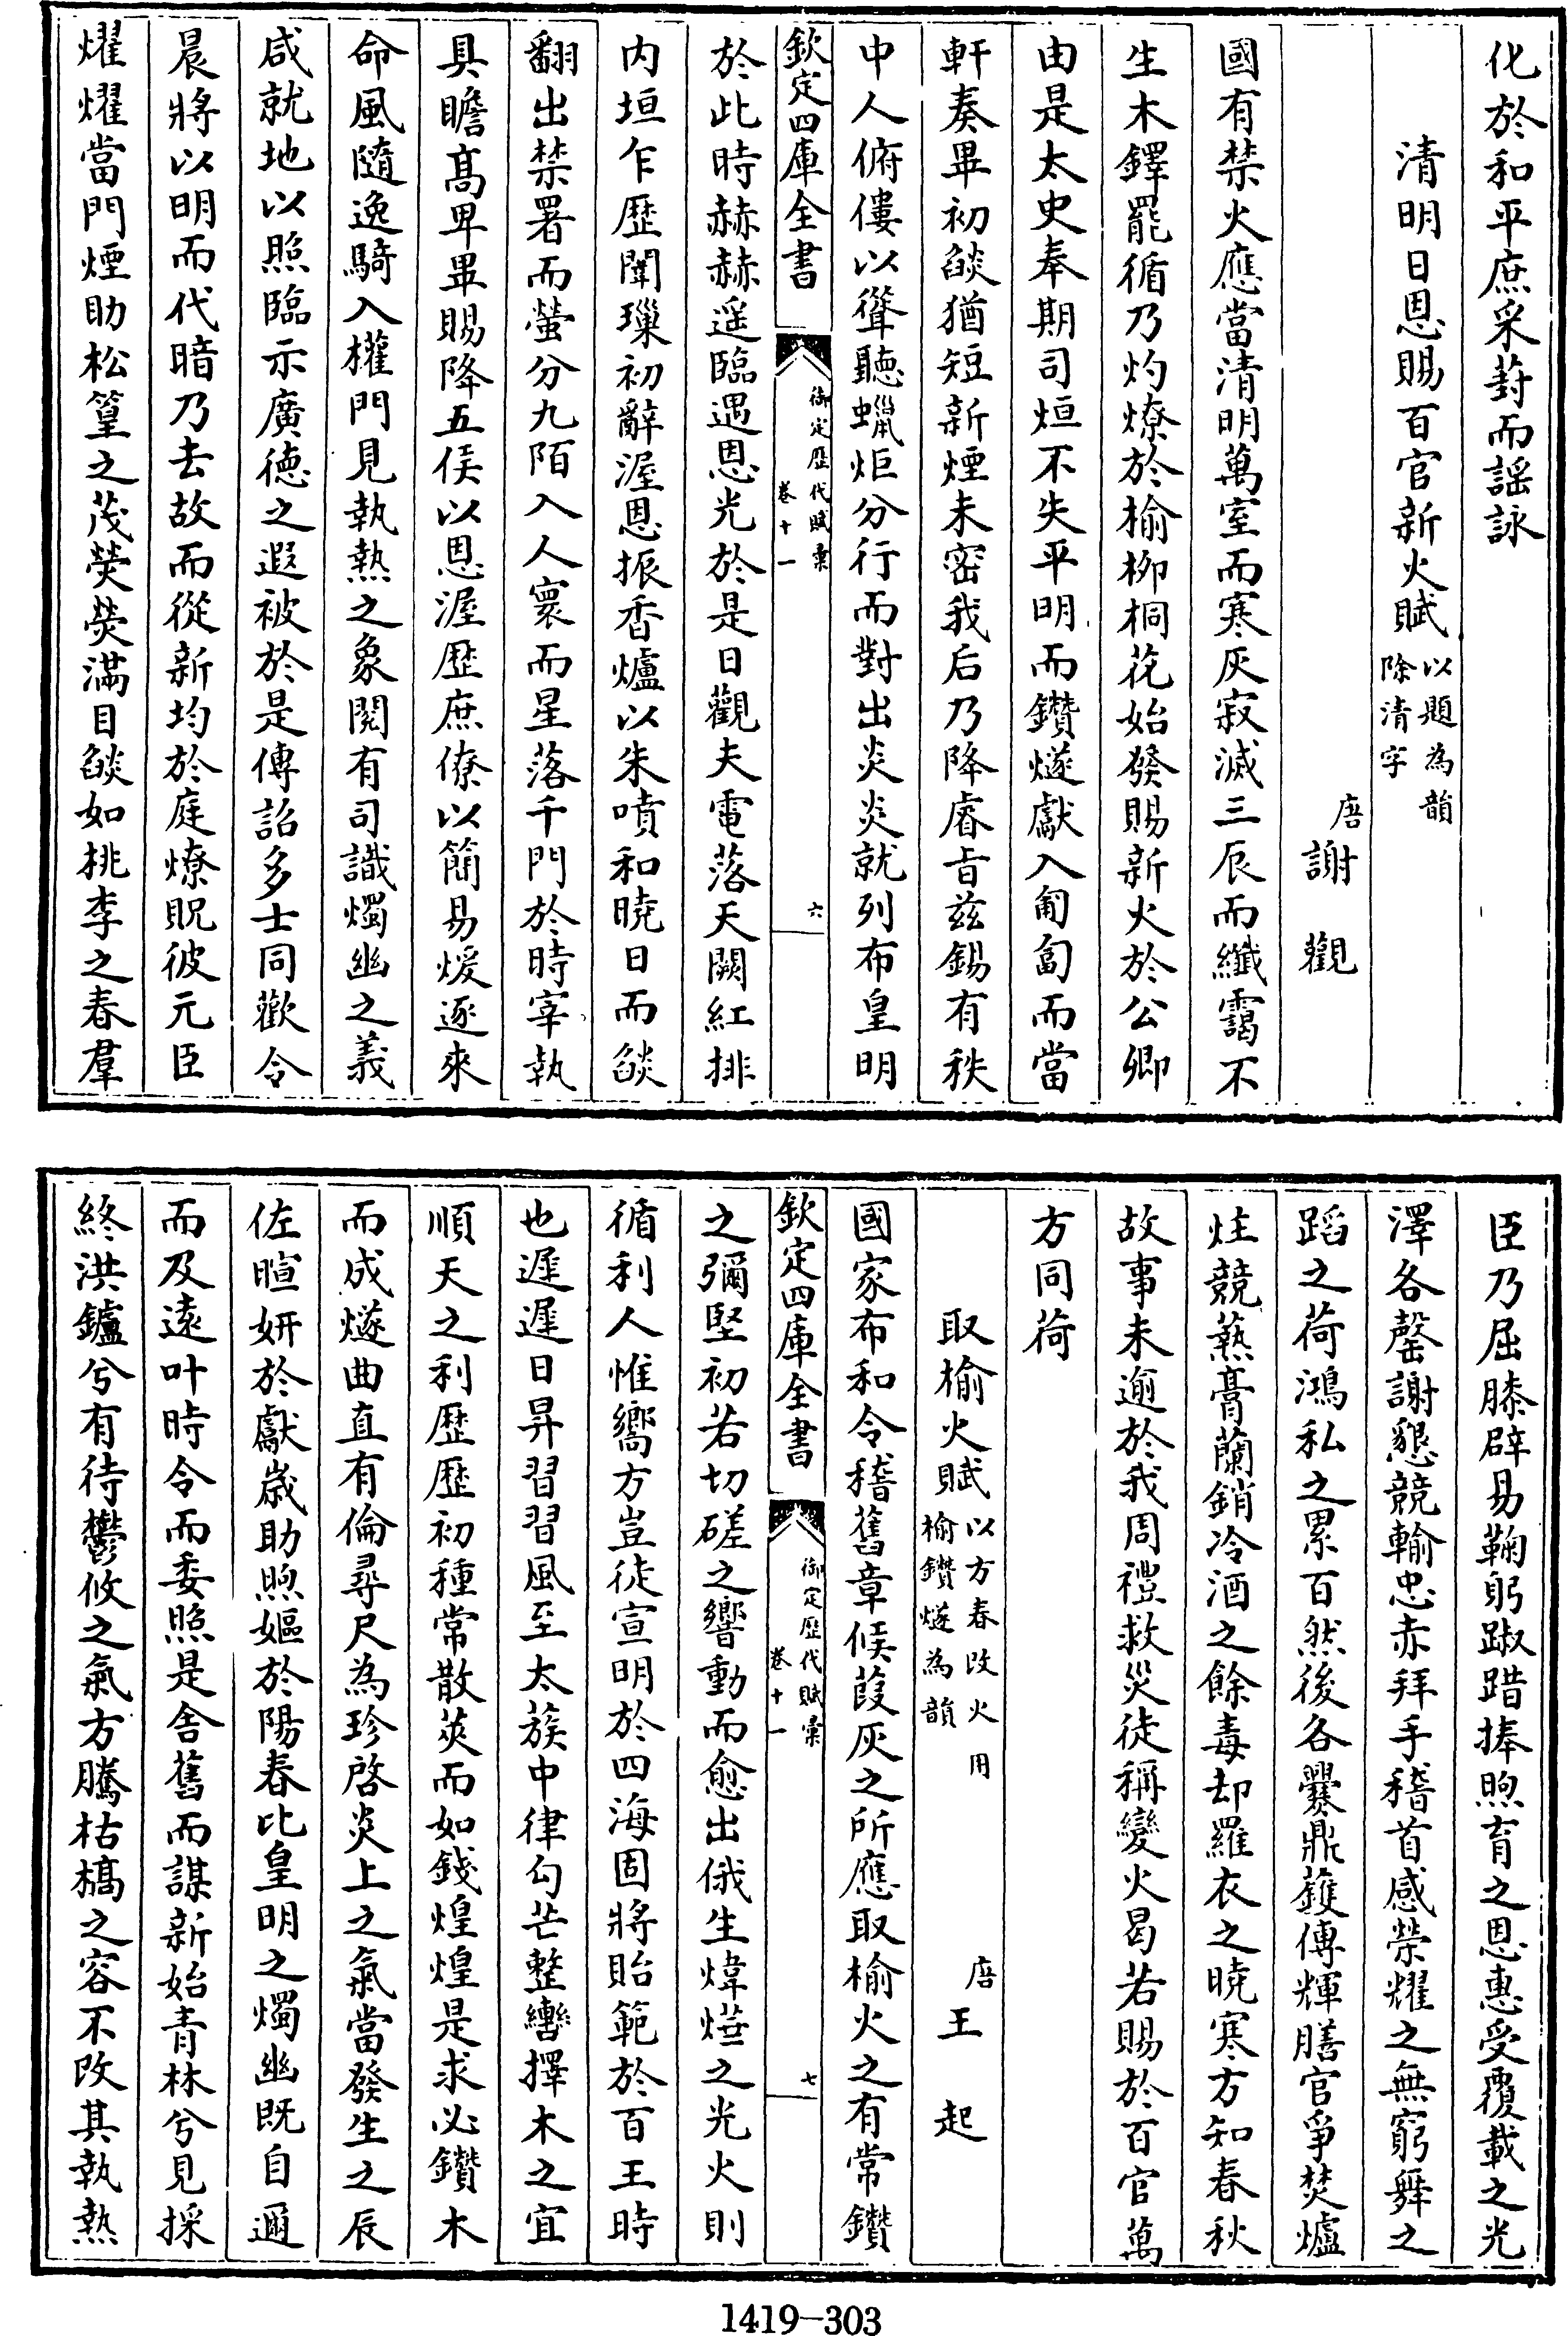 化於和平庶采葑而謡詠
清明日恩賜百官新火賦以題為韻除清字
唐謝觀
國有禁火應當清明萬室而寒灰寂滅三辰而纖靄不
生木鐸罷循乃灼燎於榆柳桐花始發賜新火於公卿
由是太史奉期司烜不失平明而鑽燧獻入匍匐而當
軒奏畢初燄猶短新煙未密我后乃降睿㫖兹錫有秩
中人俯僂以聳聽蠟炬分行而對出炎炎就列布皇明
欽定四庫全書
御定歴代賦彙
卷十一
六
於此時赫赫遥臨遇恩光於是日觀夫電落天闕紅排
内垣乍歴闈璅初辭渥恩振香爐以朱噴和曉日而燄
翻出禁署而螢分九陌入人寰而星落千門於時宰執
具瞻髙卑畢賜降五侯以恩渥歴庶僚以簡易煖逐來
命風隨逸騎入權門見執熱之象閱有司識燭幽之義
咸就地以照臨示廣德之遐被於是傳詔多士同歡令
晨將以明而代暗乃去故而從新均於庭燎貺彼元臣
燿燿當門煙助松篁之茂熒熒滿目燄如桃李之春羣
臣乃屈膝辟易鞠躬踧踖捧煦育之恩惠受覆載之光
澤各罄謝懇競輸忠赤拜手稽首感榮耀之無窮舞之
蹈之荷鴻私之累百然後各爨鼎鑊傳輝膳官爭焚爐
炷競爇膏蘭銷冷酒之餘毒却羅衣之曉寒方知春秋
故事未逾於我周禮救災徒稱變火曷若賜於百官萬
方同荷
取榆火賦以方春改火用榆鑽燧為韻
唐王起
國家布和令稽舊章候葭灰之所應取榆火之有常鑽
欽定四庫全書
御定歴代賦彙
卷十一
七
之彌堅初若切磋之響動而愈出俄生煒燁之光火則
循利人惟嚮方豈徒宣明於四海固將貽範於百王時
也遲遲日昇習習風至太蔟中律勾芒整轡擇木之宜
順天之利歴歴初種常散莢而如錢煌煌是求必鑽木
而成燧曲直有倫尋尺為珍啓炎上之氣當發生之辰
佐暄妍於獻歲助煦嫗於陽春比皇明之燭幽既自邇
而及遠叶時令而委照是舎舊而謀新始青林兮見採
終洪鑪兮有待鬱攸之氣方騰枯槁之容不改其執熱
1419-303